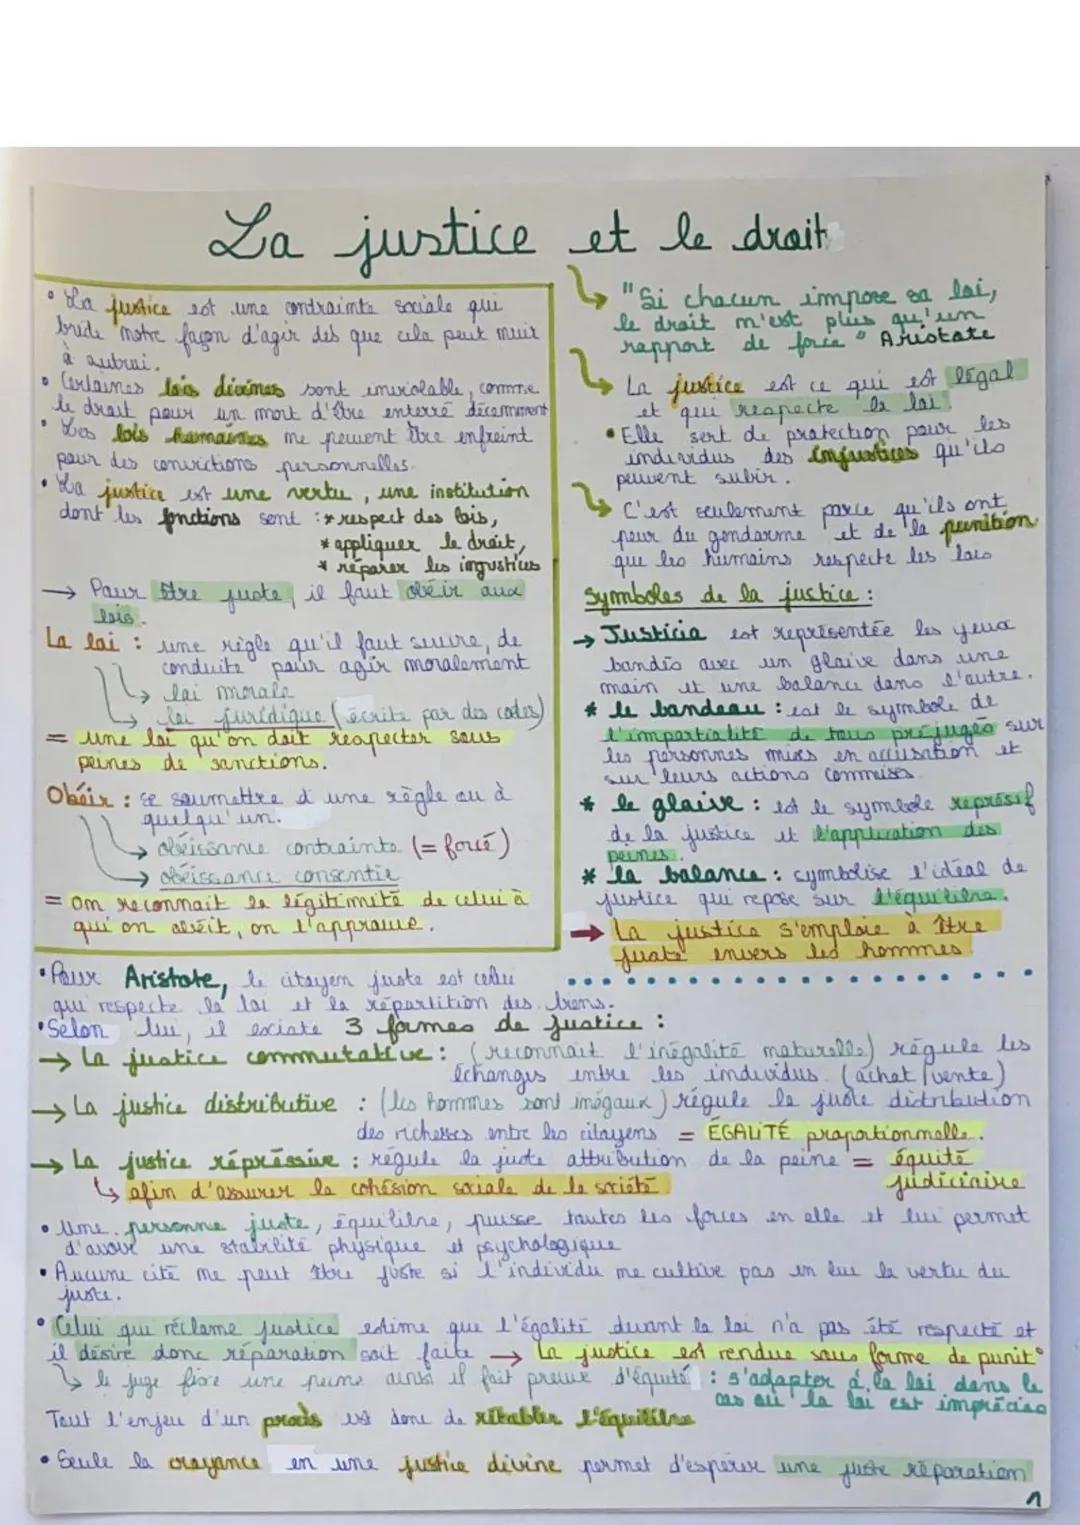 La justice et le droit
• La justice est une contrainte sociale qui
bride notre façon d'agir dès que cela peut nuir
à autrui.
• Certaines lois divines sont inviolable, comme
le droit pour un mort d'être enterré décemment
• Les lois humaines ne peuvent être enfreint
pour des convictions personnelles.
• La justice est une vertu, une institution
dont les fonctions sont : * respect des lois,
* appliquer le droit,
* réparer les injustices
→ Pour être juste, il faut obéir aux
lois.
La loi : une règle qu'il faut suivre, de
conduite pour agir moralement
↳ loi morale
↳ loi juridique (écrite par des codes)
= une loi qu'on doit respecter sous
peines de sanctions.
Obéir : se soumettre à une règle ou à
quelqu'un.
↳ obéissance contrainte (= forcé)
→ obéissance consentie
= on reconnait la légitimité de celui à
qui on obéit, on l'approuve.
↳ "Si chacun impose sa loi,
le droit n'est plus qu'un
rapport de force" Aristote
↳ La justice est ce qui est légal
et qui respecte la loi.
• Elle sert de protection pour les
individus des injustices qu'ils
peuvent subir.
↳ C'est seulement parce qu'ils ont
peur du gendarme et de la punition
que les humains respecte les lois
Symboles de la justice :
→ Justicia est représentée les yeux
bandés avec un glaive dans une
main et une balance dans l'autre.
* le bandeau : est le symbole de
l'impartialité de tous préjugés sur
les personnes mises en accusation et
sur leurs actions commises.
* le glaive : est le symbole répressif
de la justice et l'application des
peines.
* la balance : symbolise l'idéal de
justice qui repose sur l'équilibre.
→ La justice s'emploie à être
juste envers les hommes.
• Pour Aristote, le citoyen juste est celui
qui respecte la loi et la répartition des biens.
• Selon lui, il existe 3 formes de justice :
→ La justice commutative : (reconnait l'inégalité naturelle) régule les
échanges entre les individus. (achat/vente)
→ La justice distributive : (les hommes sont inégaux) régule la juste distribution
des richesses entre les citoyens = ÉGALITÉ proportionnelle.
→ La justice répressive : régule la juste attribution de la peine = équité
judiciaire
↳ afin d'assurer la cohésion sociale de la société
• Une personne juste, équilibre, puisse toutes les forces en elle et lui permet
d'avoir une stabilité physique et psychologique
• Aucune cité ne peut être juste si l'individu ne cultive pas en lui la vertu du
juste.
• Celui qui réclame justice estime que l'égalité devant la loi n'a pas été respecté et
il désire donc réparation soit faite → La justice est rendue sous forme de punit°
↳ le juge fixe une peine ainsi il fait preuve d'équité : s'adapter à la loi dans le
cas où la loi est imprécise
Tout l'enjeu d'un procès est donc de rétablir l'équilibre
• Seule la croyance en une justice divine permet d'espérer une juste réparation
1